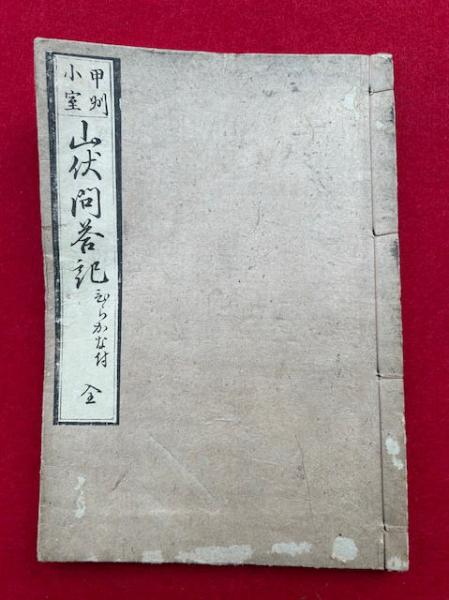 甲州
小室
山伏問答記
ひらかな付
全